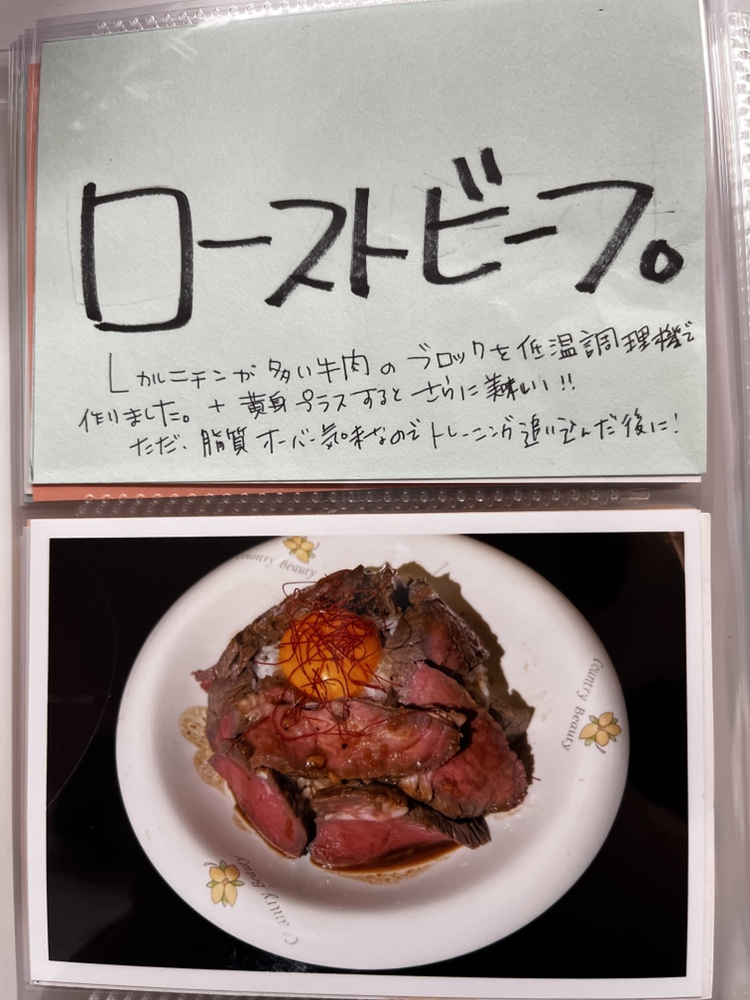 ローストビーフ。
Lカルニチンが多い牛肉のブロックを低温調理機で
作りました。+黄身プラスするとさらに美味い!!
ただ、脂質オーバー気味なのでトレーニング追い込んだ後に!
Country Beauty
Country Beauty
Country Beauty